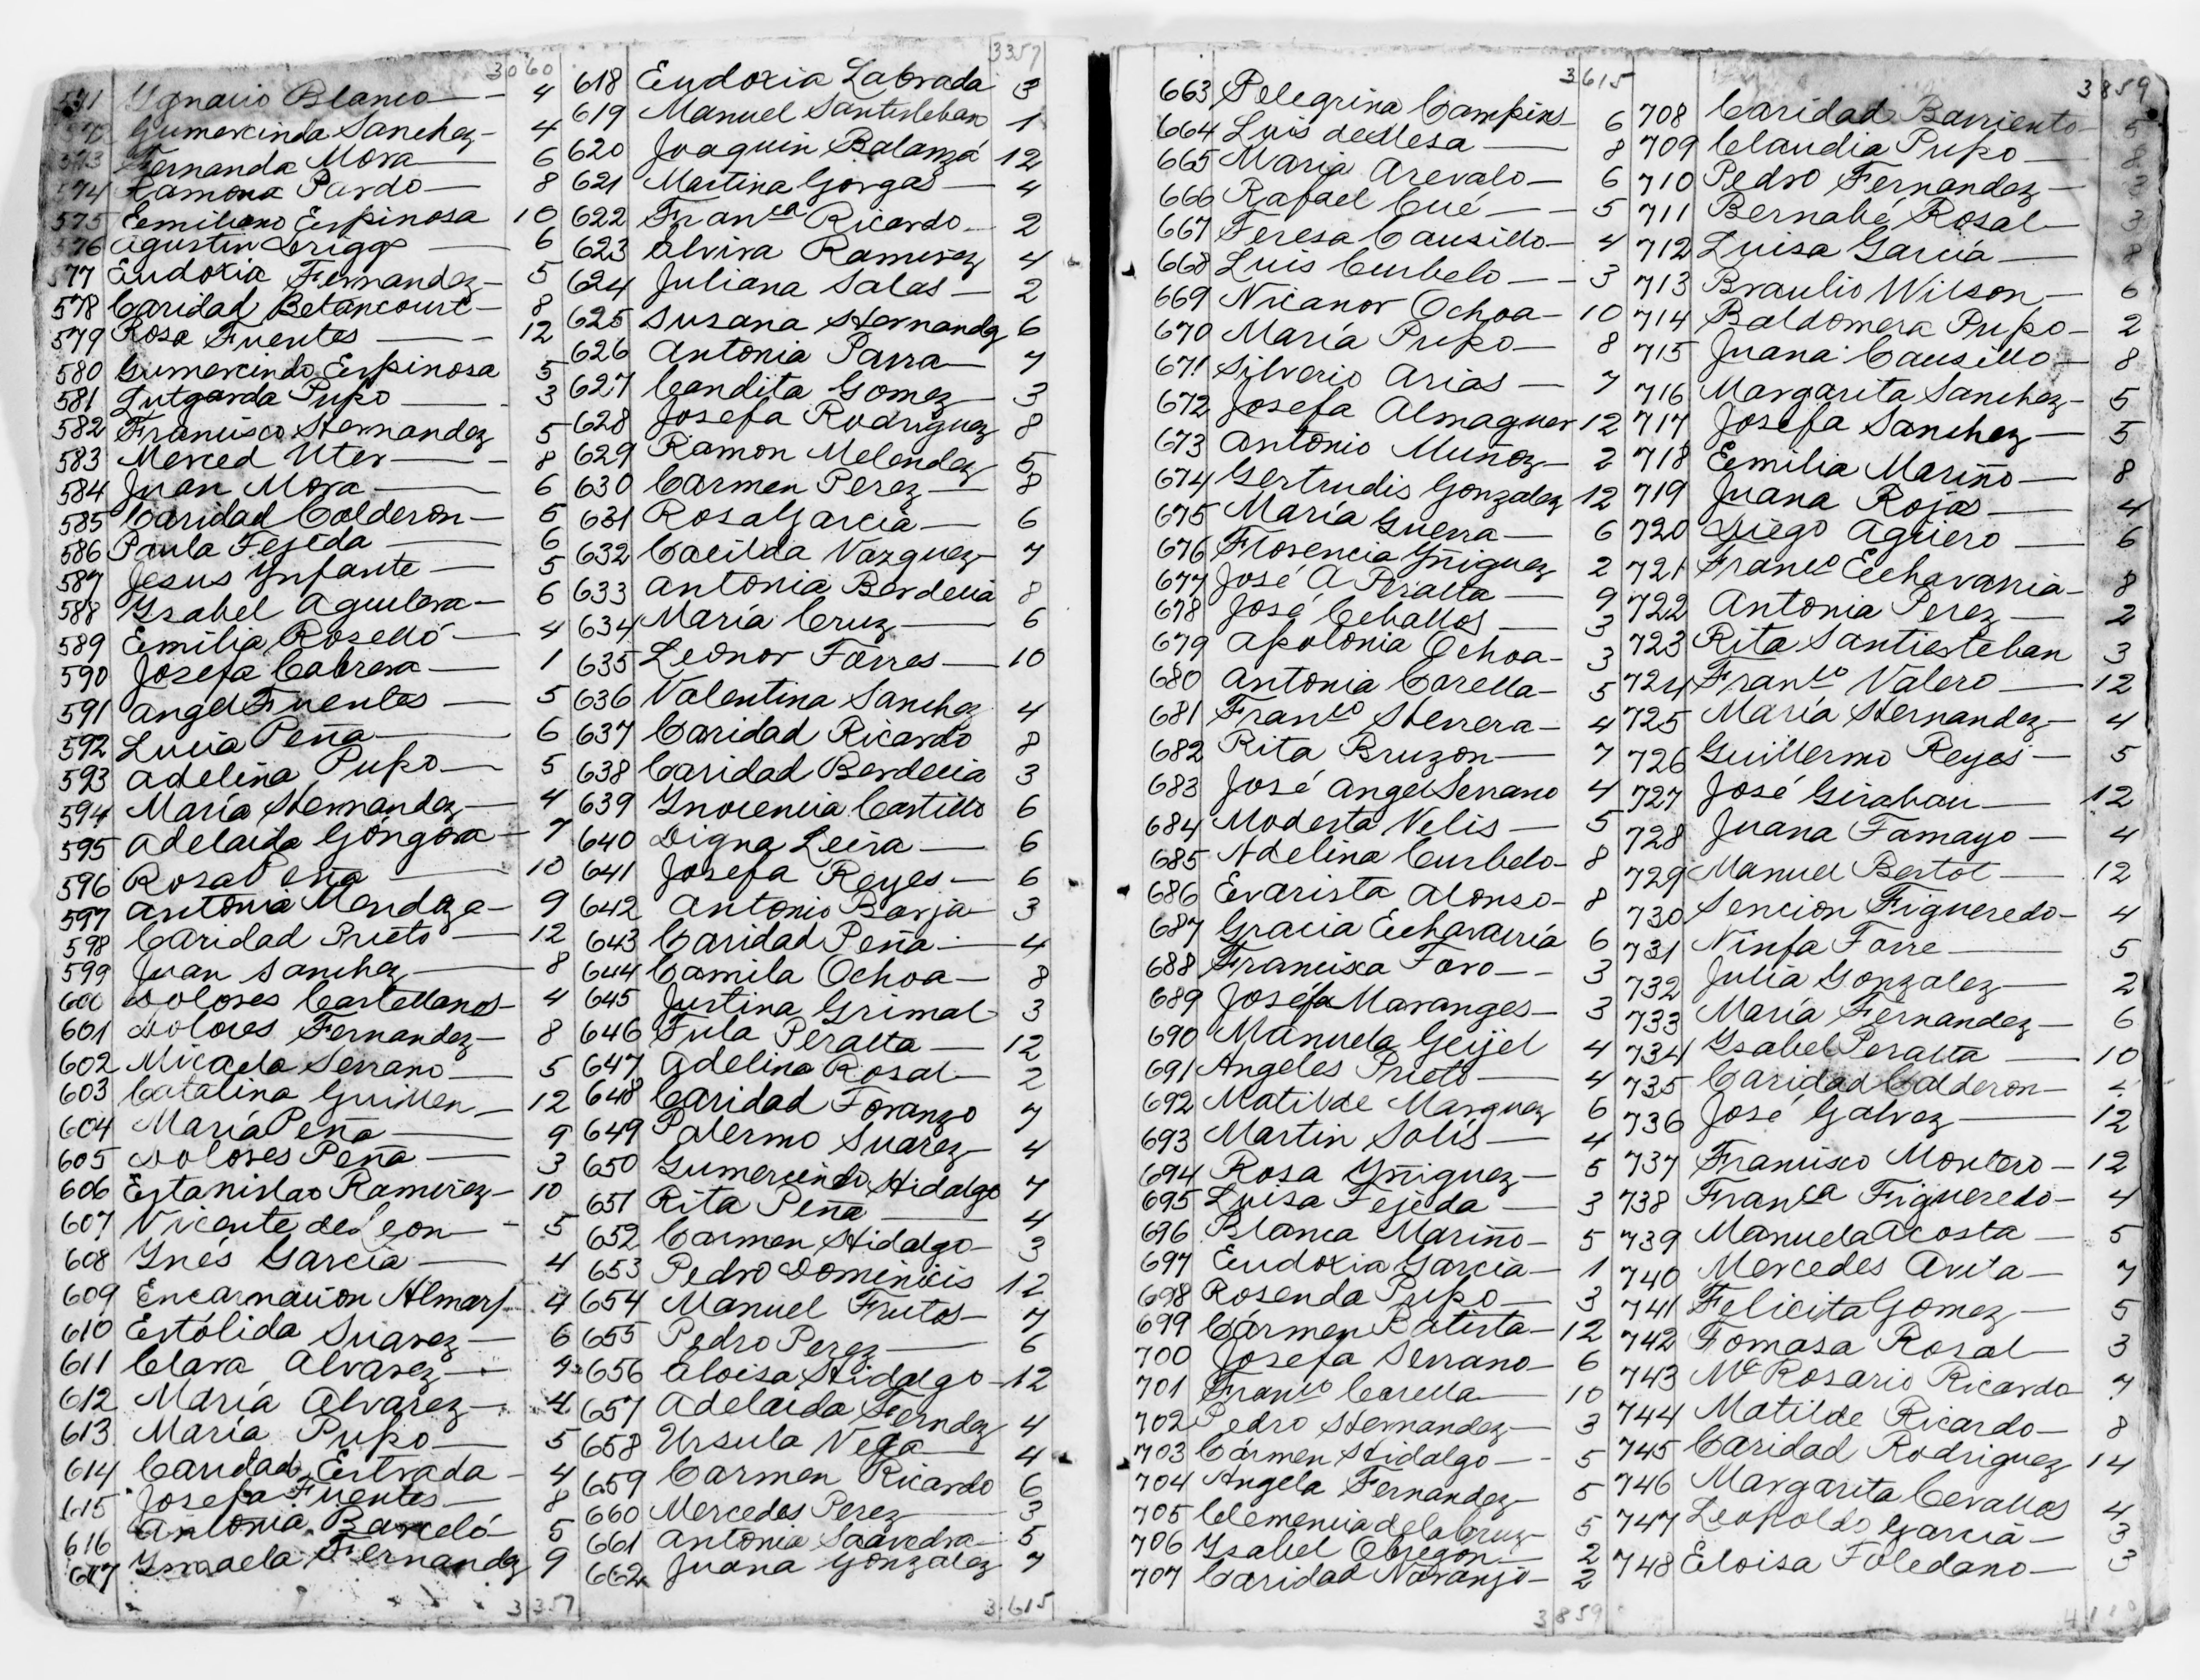 3060
571 Ygnacio Blanco — 4
572 Gumercinda Sanchez — 4
573 Fernanda Mora — 6
574 Ramona Pardo — 8
575 Eemiliano Espinosa 10
576 Agustin Griggs — 6
577 Eudoxia Fernandez — 5
578 Caridad Betancourt — 8
579 Rosa Fuentes — 12
580 Gumercindo Espinosa 5
581 Lutgarda Pupo — 3
582 Francisco Hernandez 5
583 Merced Uter — 8
584 Juan Mora — 6
585 Caridad Calderon — 5
586 Paula Tejeda — 6
587 Jesus Ynfante — 5
588 Ysabel Aguilera — 6
589 Emilia Roselló — 4
590 Josefa Cabrera — 1
591 Angel Fuentes — 5
592 Lucia Peña — 6
593 Adelina Pupo — 5
594 María Hernandez — 4
595 Adelaida Góngora — 7
596 Rosa Peña — 10
597 Antonia Mendoza — 9
598 Caridad Prieto — 12
599 Juan Sanchez — 8
600 Dolores Castellanos 4
601 Dolores Fernandez — 8
602 Micaela Serrano — 5
603 Catalina Guillen — 12
604 María Peña — 9
605 Dolores Peña — 3
606 Estanislao Ramirez — 10
607 Vicente de Leon — 5
608 Ynés Garcia — 4
609 Encarnacion Almarf 4
610 Estólida Suarez — 6
611 Clara Alvarez — 9
612 María Alvarez — 4
613 María Pupo — 5
614 Caridad Estrada — 4
615 Josefa Fuentes — 8
616 Antonia Barceló — 5
617 Ysmaela Fernandz 9
3357
3357
618 Eudoxia Labrada 3
619 Manuel Santisteban 1
620 Joaquin Balanzá 12
621 Martina Gorgas — 4
622 Franca Ricardo — 2
623 Elvira Ramirez 4
624 Juliana Salas — 2
625 Susana Hernandz 6
626 Antonia Parra — 7
627 Candita Gomez — 3
628 Josefa Rodriguez 8
629 Ramon Melendez 5
630 Carmen Perez — 8
631 Rosa Garcia — 6
632 Cacilda Vazquez 7
633 Antonia Berdecia 8
634 María Cruz — 6
635 Leonor Torres — 10
636 Valentina Sanchez 4
637 Caridad Ricardo 8
638 Caridad Berdecia 3
639 Ynocencia Castillo 6
640 Digna Leira — 6
641 Josefa Reyes — 6
642 Antonio Borja — 3
643 Caridad Peña — 4
644 Camila Ochoa — 8
645 Justina Grimal 3
646 Tula Peralta — 12
647 Adelina Rosal — 2
648 Caridad Toranzo 7
649 Palermo Suarez — 4
650 Gumercindo Hidalgo 7
651 Rita Peña — 4
652 Carmen Hidalgo — 3
653 Pedro Dominicis 12
654 Manuel Frutos — 7
655 Pedro Perez — 6
656 Eloisa Hidalgo — 12
657 Adelaida Ferndez 4
658 Ursula Vega — 4
659 Carmen Ricardo 6
660 Mercedes Perez — 3
661 Antonia Saavedra — 5
662 Juana Gonzalez 7
3615
3615
663 Pelegrina Campins 6
664 Luis de Mesa — 8
665 María Arevalo — 6
666 Rafael Cué — 5
667 Teresa Causillo — 4
668 Luis Curbelo — 3
669 Nicanor Ochoa — 10
670 María Pupo — 8
671 Silverio Arias — 7
672 Josefa Almaguer 12
673 Antonio Muñoz — 2
674 Gertrudis Gonzalez 12
675 María Guerra — 6
676 Florencia Yñiguez 2
677 José A Peralta — 9
678 José Ceballos — 3
679 Apolonia Ochoa — 3
680 Antonia Carella — 5
681 Franco Herrera — 4
682 Rita Bruzon — 7
683 José Angel Serrano 4
684 Modesta Velis — 5
685 Adelina Curbelo — 8
686 Evarista Alonso — 8
687 Gracia Echavarría 6
688 Francisca Toro — 3
689 Joséfa Maranges — 3
690 Manuela Geijel 4
691 Angeles Prieto — 4
692 Matilde Marquez 6
693 Martin Solís — 4
694 Rosa Yñiguez — 5
695 Luisa Tejeda — 3
696 Blanca Mariño — 5
697 Eudoxia Garcia — 1
698 Rosenda Pupo — 3
699 Cármen Batista — 12
700 Josefa Serrano — 6
701 Franco Carella — 10
702 Pedro Hernandez — 3
703 Carmen Hidalgo — 5
704 Angela Fernandez 5
705 Clemencia de la Cruz 5
706 Ysabel Obregon — 2
707 Caridad Naranjo — 2
3859
3859
708 Caridad Barriento 5
709 Claudia Pupo — 8
710 Pedro Fernandez — 3
711 Bernabé Rosal — 3
712 Luisa García — 8
713 Braulio Wilson — 6
714 Baldomera Pupo — 2
715 Juana Causillo — 8
716 Margarita Sanchez — 5
717 Josefa Sanchez — 5
718 Eemilia Mariño — 8
719 Juana Rojas — 4
720 Diego Agüero — 6
721 Franco Echavarria — 8
722 Antonia Perez — 2
723 Rita Santiesteban 3
724 Franco Valero — 12
725 María Hernandez — 4
726 Guillermo Reyes — 5
727 José Giraban — 12
728 Juana Tamayo — 4
729 Manuel Bertot — 12
730 Sencion Figueredo — 4
731 Ninfa Torre — 5
732 Julia Gonzalez — 2
733 María Fernandez — 6
734 Ysabel Peralta — 10
735 Caridad Calderon —
736 José Galvez — 12
737 Francisco Montero — 12
738 Franca Figueredo — 4
739 Manuela Acosta — 5
740 Mercedes Avila — 7
741 Felicita Gomez — 5
742 Tomasa Rosal — 3
743 Ma Rosario Ricardo 7
744 Matilde Ricardo — 8
745 Caridad Rodriguez 14
746 Margarita Cevallos 4
747 Leopoldo Garcia — 3
748 Eloisa Toledano — 3